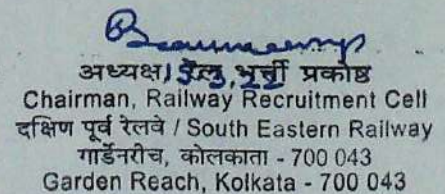 अध्यक्ष, रेलु भर्त्ती प्रकोष्ठ
Chairman, Railway Recruitment Cell
दक्षिण पूर्व रेलवे / South Eastern Railway
गार्डेनरीच, कोलकाता - 700 043
Garden Reach, Kolkata - 700 043